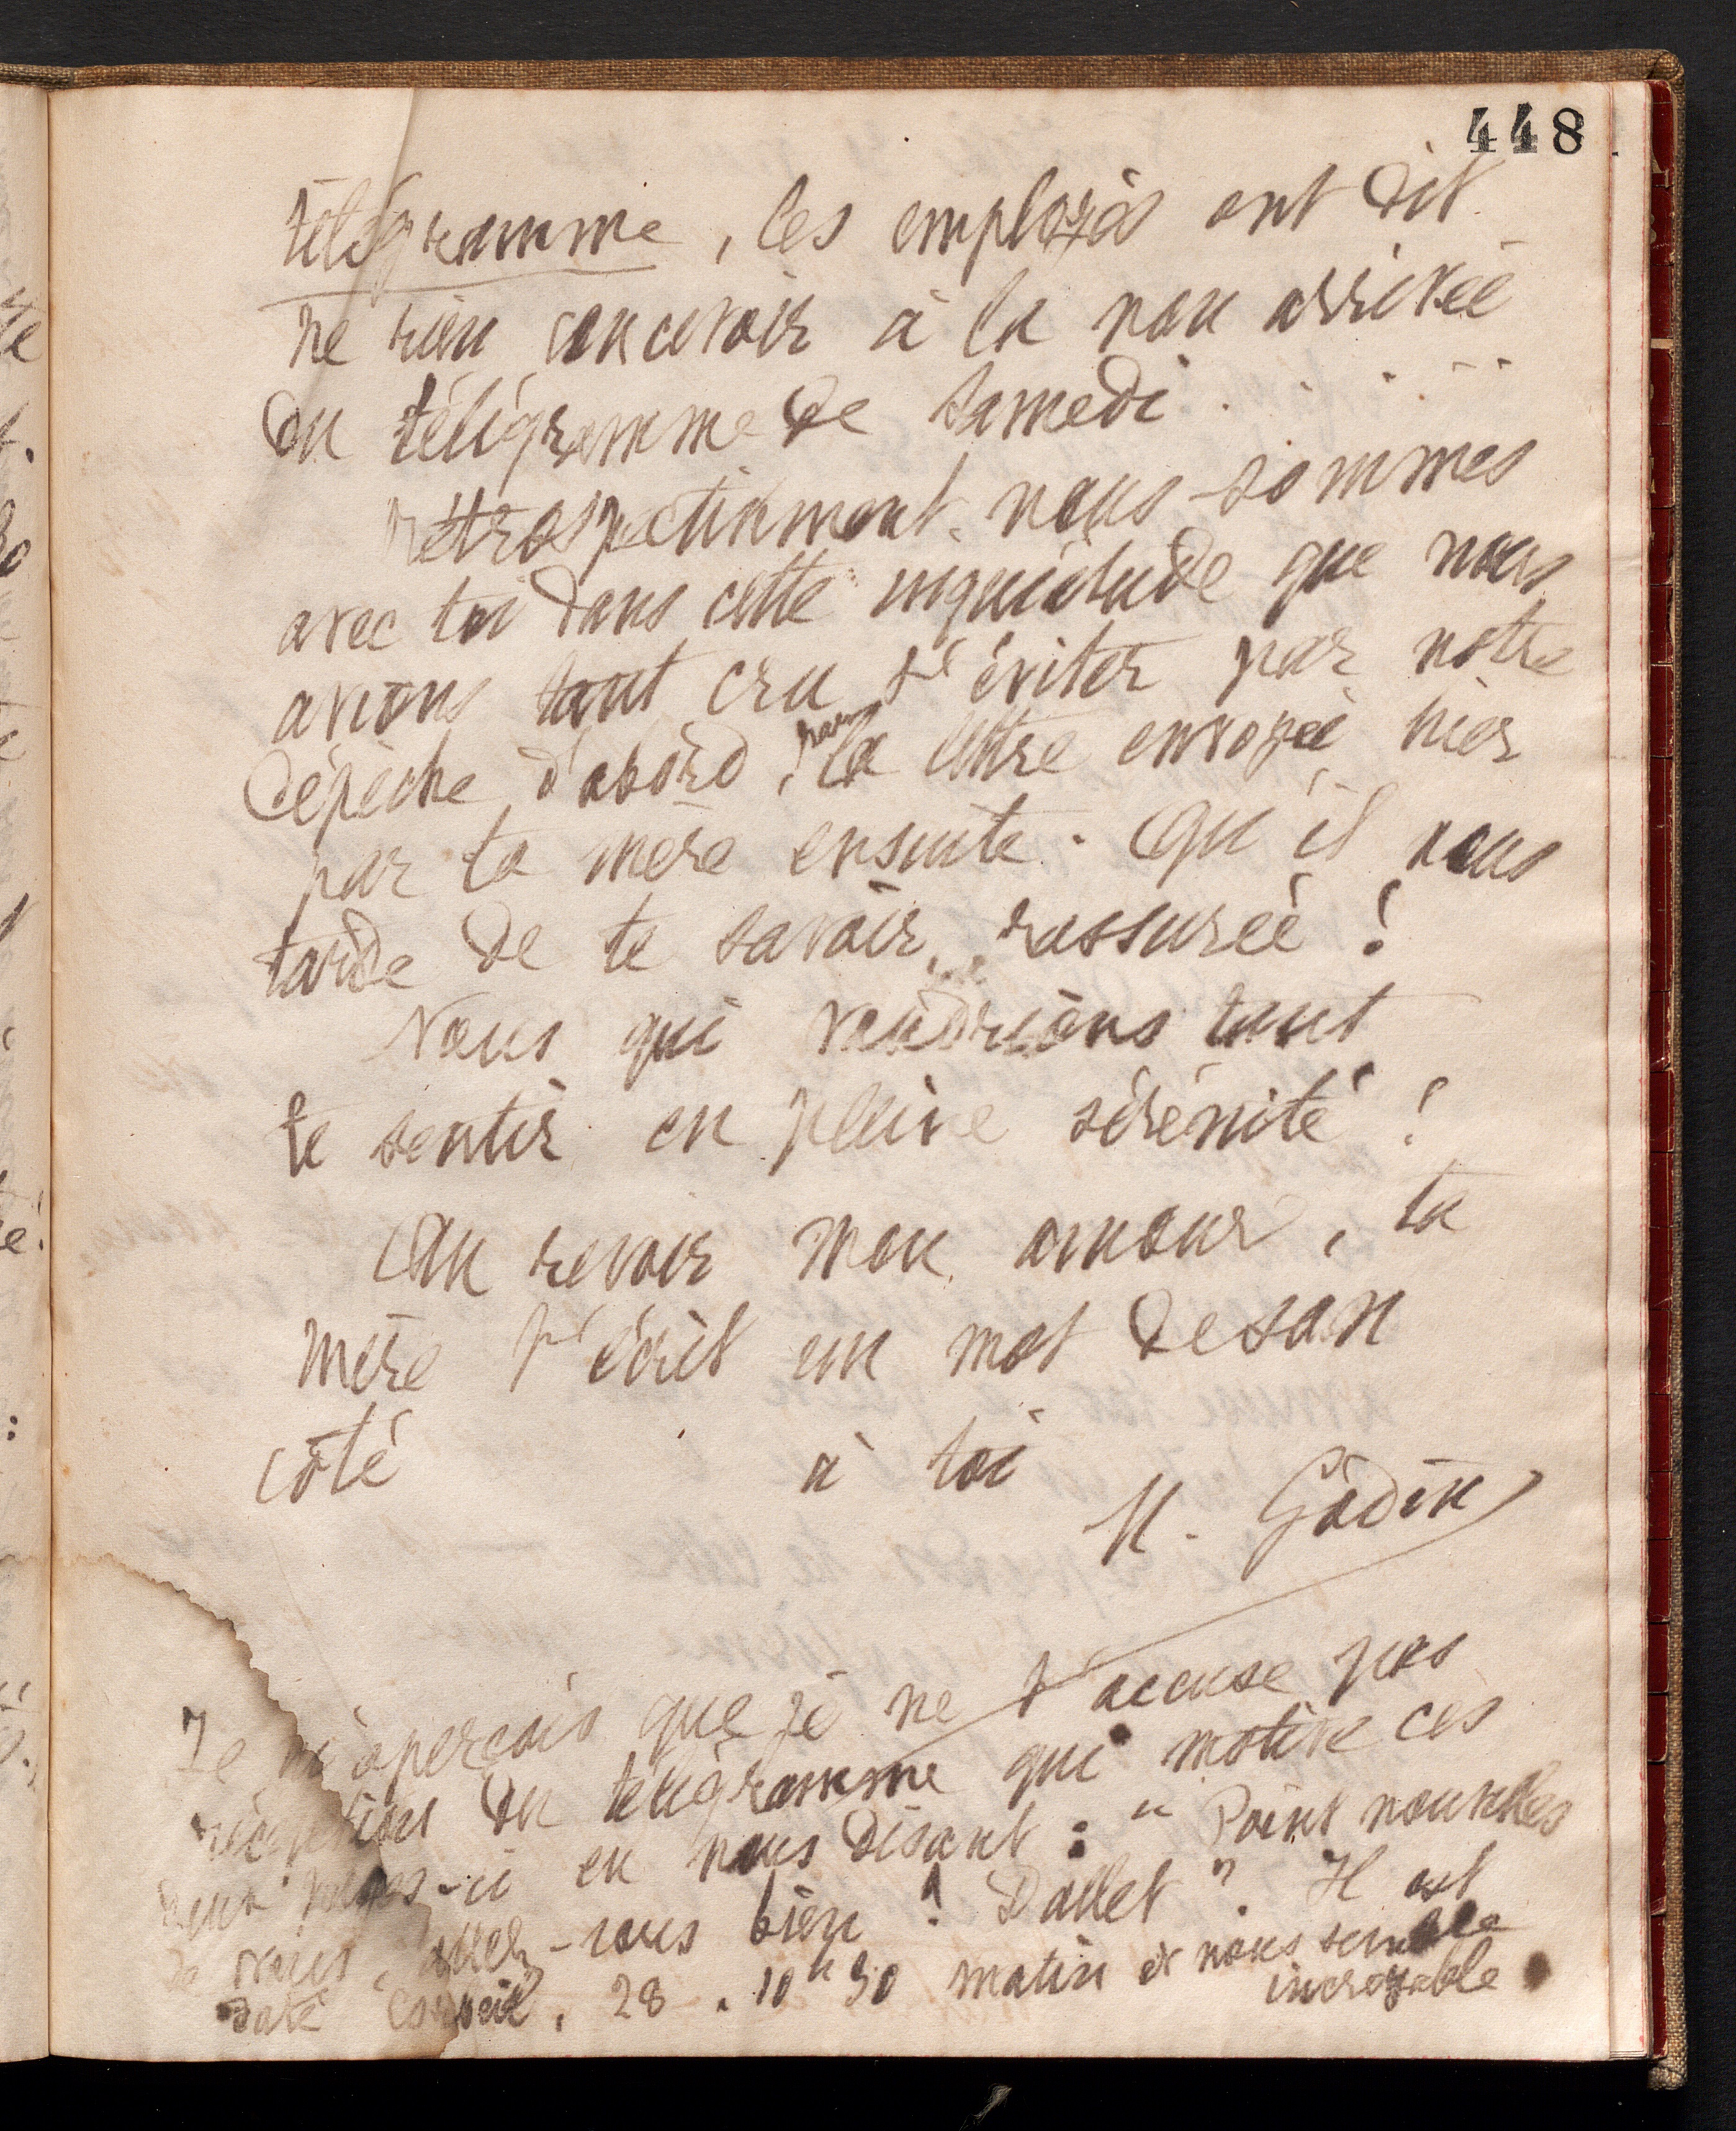 448
télégramme, les employés ont dit
ne rien concevoir à la non arrivée
du télégramme de samedi.
Rétrospectivement nous sommes
avec toi dans cette inquiétude que nous
avions tant cru t'éviter par notre
dépêche d'abord, par la lettre envoyée hier
par ta mère ensuite. Qu'il nous
tarde de te savoir rassurée !
Nous qui voudrions tant
te sentir en pleine sérénité !
Au revoir mon amour, ta
mère t'écrit un mot de son
côté à toi
M. Godin
Je m'aperçois que je ne t'accuse pas
réception du télégramme qui motive ces
deux pages-ci en nous disant : " Point nouvelles
de vous, allez-vous bien ! Dallet ". Il est
daté Corbeil, 28, 10h 30 matin et nous semble
incroyable